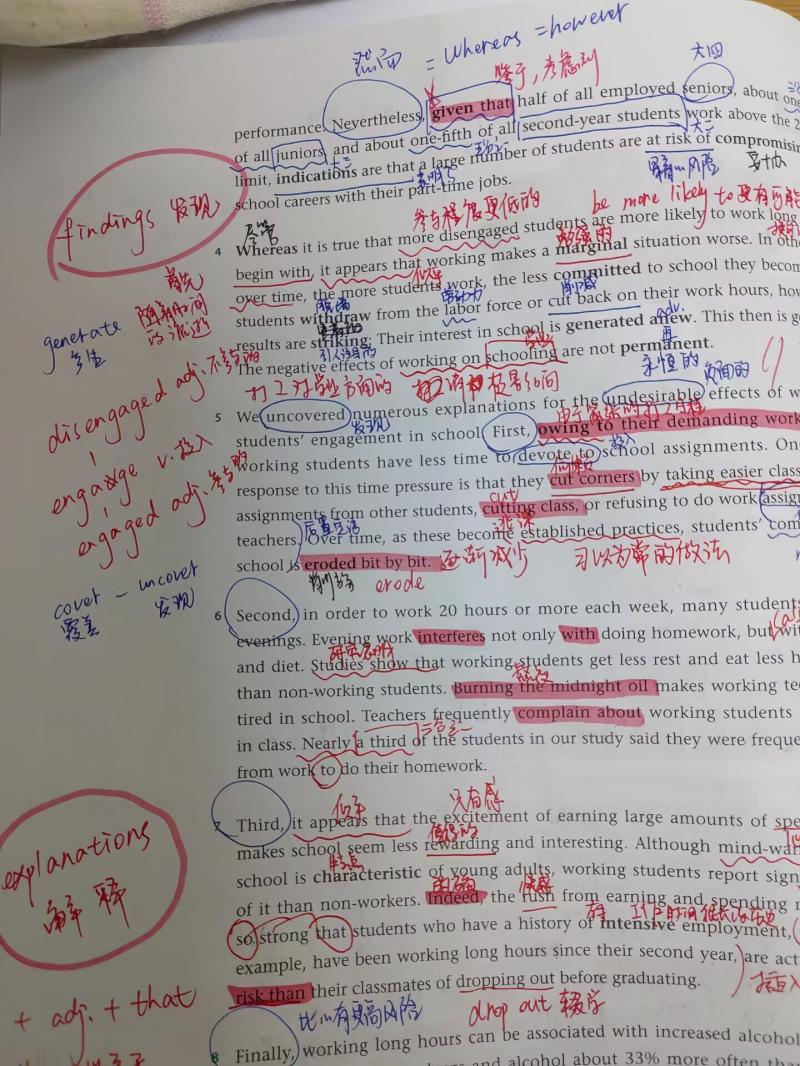 然而 = whereas = however
鉴于，考虑到
大四
performance. Nevertheless, given that half of all employed seniors, about one
of all juniors, and about one-fifth of all second-year students work above the 2
大三
大二
limit, indications are that a large number of students are at risk of compromisin
school careers with their part-time jobs.
findings 发现
参与程度更低的
be more likely to 更有可能
尽管
勉强的
4 Whereas it is true that more disengaged students are more likely to work long
begin with, it appears that working makes a marginal situation worse. In oth
首先
似乎
over time, the more students work, the less committed to school they becom
随着时间的流逝
劳动力
削减
students withdraw from the labor force or cut back on their work hours, how
generate
产生
results are striking: Their interest in school is generated anew. This then is g
引人注目的
adv. 再
The negative effects of working on schooling are not permanent.
永恒的
负面的
disengaged adj. 不参与的
engage v. 投入
engaged adj. 参与的
5 We uncovered numerous explanations for the undesirable effects of w
发现
students' engagement in school. First, owing to their demanding work
working students have less time to devote to school assignments. One
投入
response to this time pressure is that they cut corners by taking easier class
assignments from other students, cutting class, or refusing to do work assign
cut
逃课
teachers. Over time, as these become established practices, students' com
school is eroded bit by bit. 逐渐减少 习以为常的做法
erode
cover - uncover
覆盖 发现
6 Second, in order to work 20 hours or more each week, many students
evenings. Evening work interferes not only with doing homework, but wit
研究表明
and diet. Studies show that working students get less rest and eat less h
熬夜
than non-working students. Burning the midnight oil makes working tee
tired in school. Teachers frequently complain about working students
三分之一
in class. Nearly a third of the students in our study said they were freque
from work to do their homework.
似乎
7 Third, it appears that the excitement of earning large amounts of spe
值得的
makes school seem less rewarding and interesting. Although mind-wan
特点
school is characteristic of young adults, working students report sign
的确
快感
of it than non-workers. Indeed, the rush from earning and spending m
explanations
解释
so strong that students who have a history of intensive employment,
example, have been working long hours since their second year, are act
插入
risk than their classmates of dropping out before graduating.
比…有更高风险
drop out 辍学
+ adj. + that
8 Finally, working long hours can be associated with increased alcohol
and alcohol about 33% more often tha